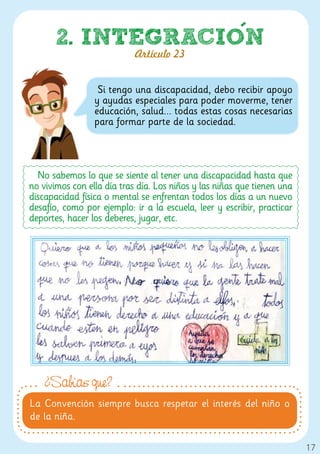 2. INTEGRACIÓN
Artículo 23
Si tengo una discapacidad, debo recibir apoyo
y ayudas especiales para poder moverme, tener
educación, salud... todas estas cosas necesarias
para formar parte de la sociedad.
No sabemos lo que se siente al tener una discapacidad hasta que
no vivimos con ella día tras día. Los niños y las niñas que tienen una
discapacidad física o mental se enfrentan todos los días a un nuevo
desafío, como por ejemplo: ir a la escuela, leer y escribir, practicar
deportes, hacer los deberes, jugar, etc.
Quiero que a los niños pequeños no les obligen a hacer
cosas que no tienen porque hacer y si no las hacen
que no les peguen. No quiero que la gente trate mal
a una persona por ser distinta a ellos. todos
los niños tienen derecho a una educación y a que
cuando estén en peligro
les salven primero a eyos
y despues a los demás.
Ayuda
a que se
cumplan
los derechos
a los
niños
¿Sabías que?
La Convención siempre busca respetar el interés del niño o
de la niña.
17